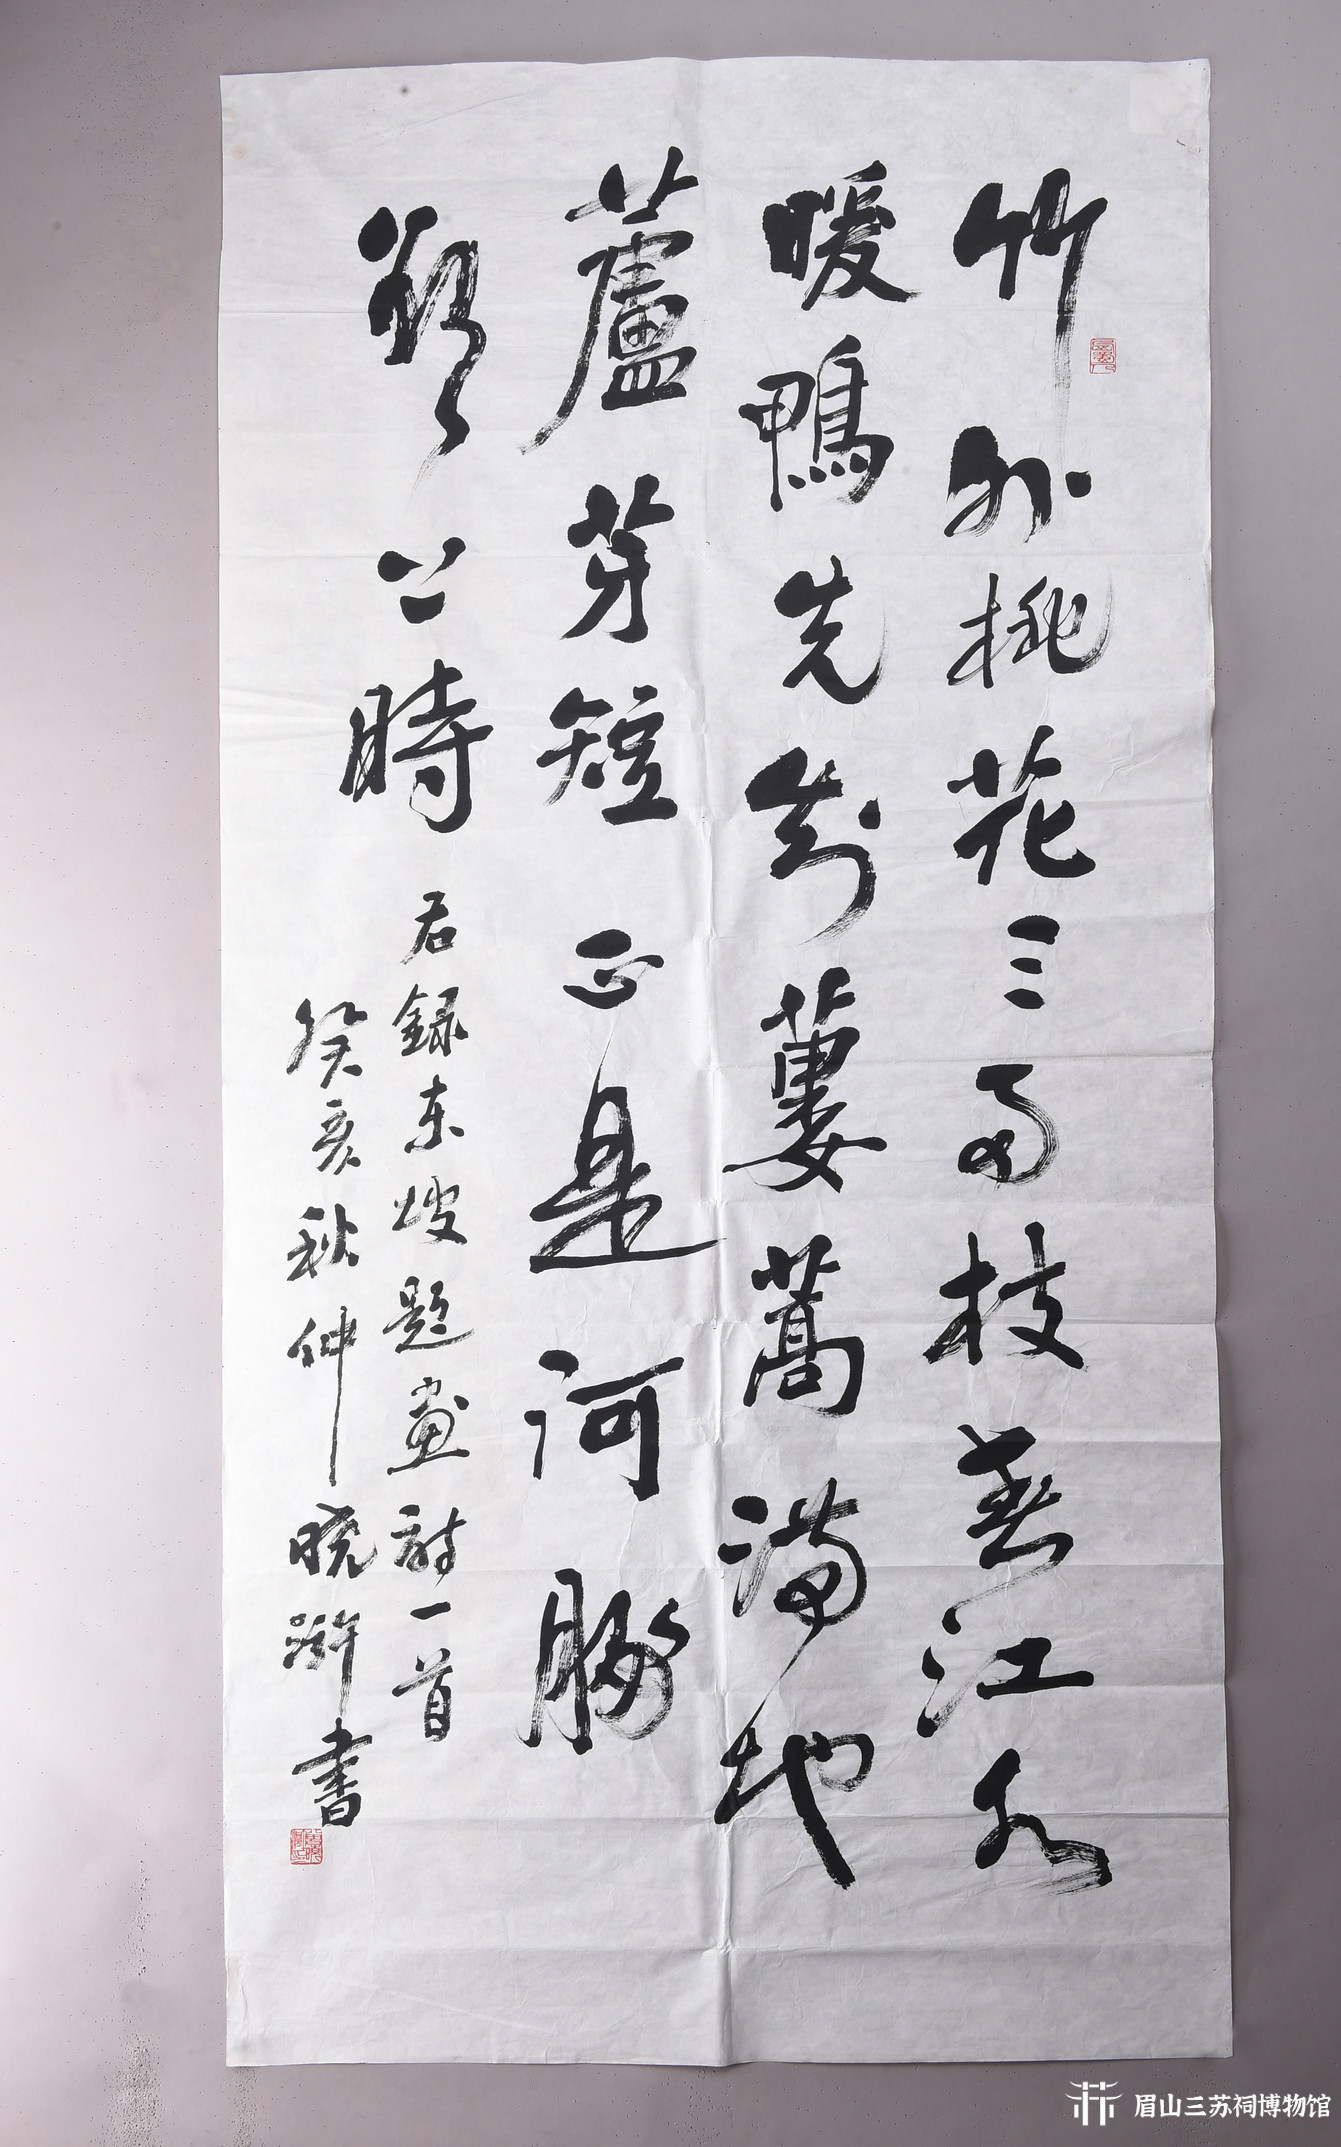 竹外桃花三兩枝春江水
暖鴨先知蔞蒿滿地
蘆芽短正是河豚
欲上時
右録東坡題畫詩一首
癸亥秋仲曉滸書
眉山三苏祠博物馆